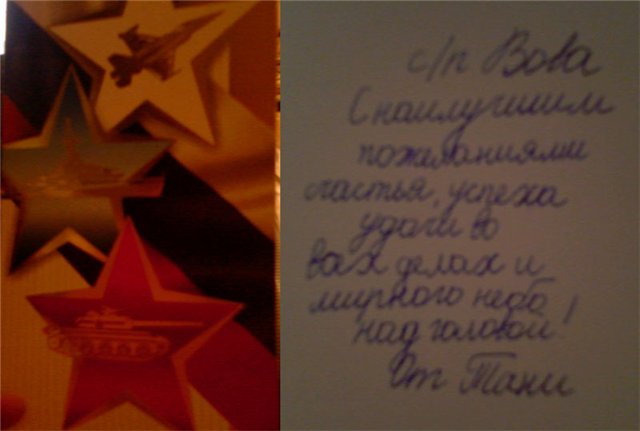 с/п Вова
С наилучшими
пожеланиями
счастья, успеха
удачи во
всех делах и
мирного неба
над головой!
От Тани